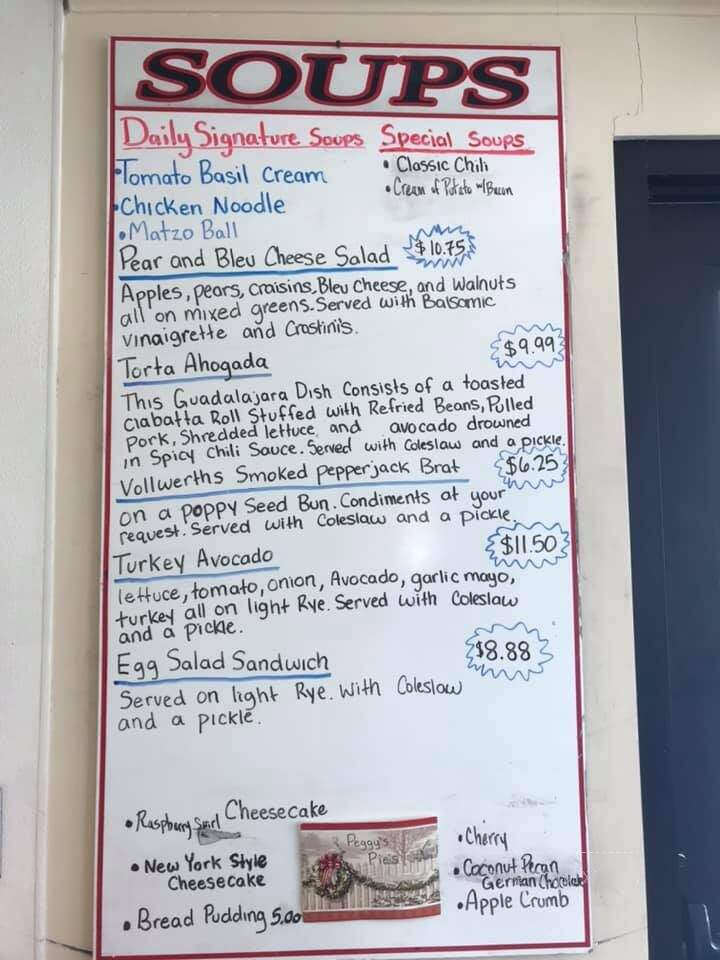 SOUPS
Daily Signature Soups
• Tomato Basil Cream
• Chicken Noodle
• Matzo Ball
Special Soups
• Classic Chili
• Cream of Potato w/ Bacon
Pear and Bleu Cheese Salad $10.75
Apples, pears, craisins, Bleu Cheese, and Walnuts
all on mixed greens. Served with Balsamic
vinaigrette and Crostini's.
Torta Ahogada $9.99
This Guadalajara Dish Consists of a toasted
Ciabatta Roll Stuffed with Refried Beans, Pulled
Pork, Shredded lettuce, and avocado drowned
in Spicy Chili Sauce. Served with Coleslaw and a pickle.
Vollwerths Smoked Pepperjack Brat $6.25
on a Poppy Seed Bun. Condiments at your
request. Served with Coleslaw and a pickle.
Turkey Avocado $11.50
lettuce, tomato, onion, Avocado, garlic mayo,
turkey all on light Rye. Served with Coleslaw
and a pickle.
Egg Salad Sandwich $8.88
Served on light Rye. With Coleslaw
and a pickle.
• Raspberry Swirl Cheesecake
• New York Style
Cheesecake
• Bread Pudding 5.00
Peggy's
Pies
• Cherry
• Coconut Pecan
German Chocolate
• Apple Crumb